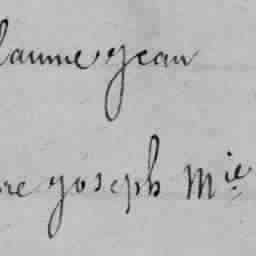 laume jean
re joseph Mie